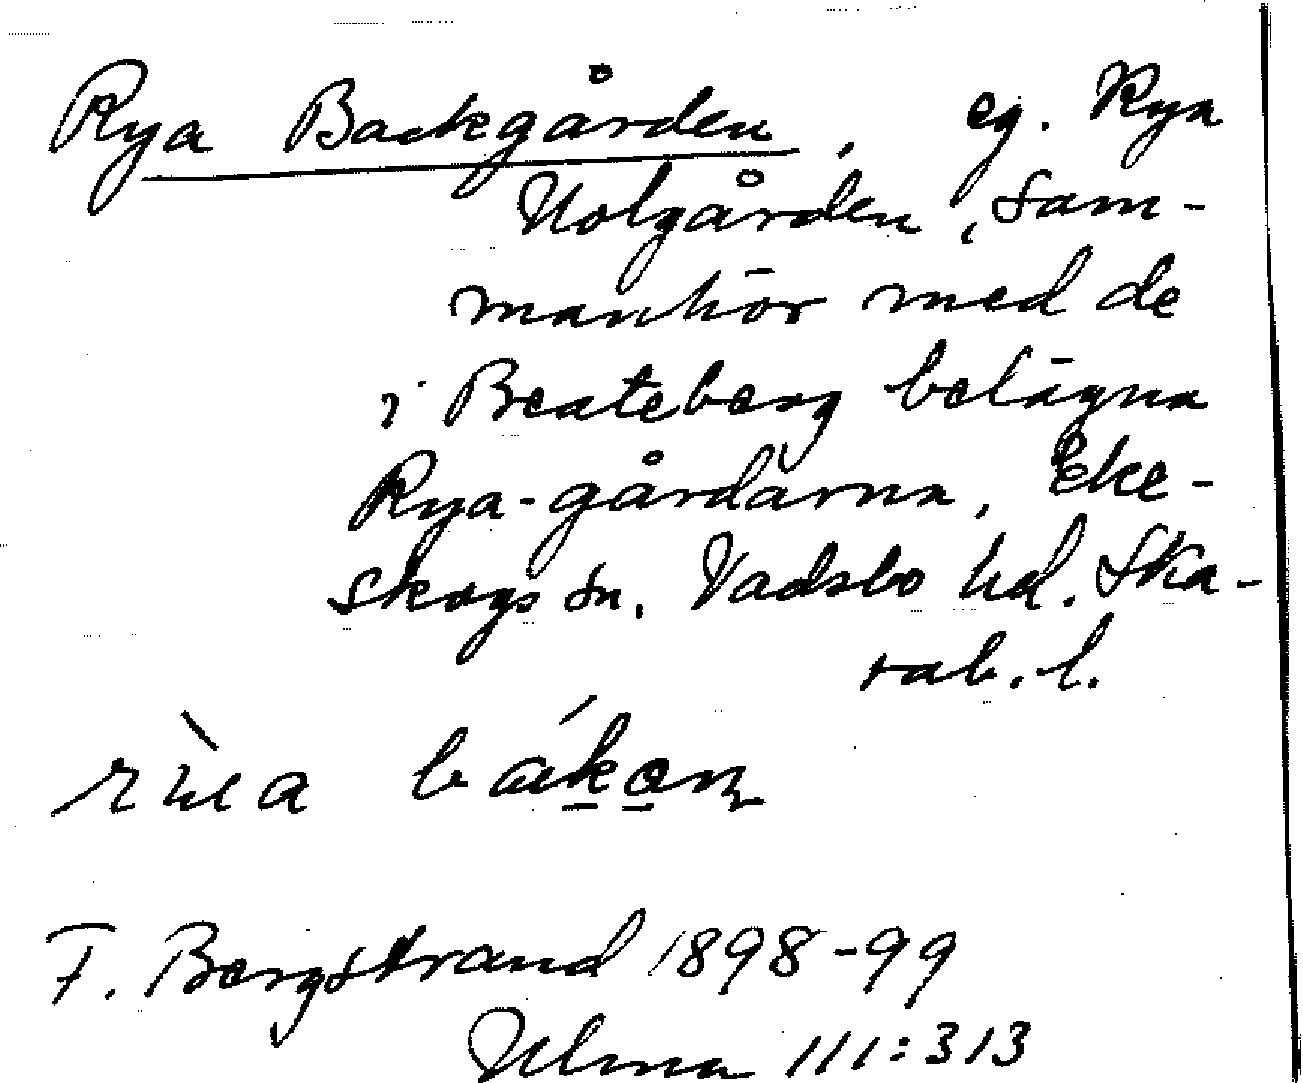 Rya Backgården, eg. Rya
Nolgården, Sam-
manhör med de
i Beateberg belägna
Rya-gårdarna, Eke-
skogs sn. Vadsbo hd. Ska-
rab. l.
F. Bergstrand 1898-99
Ulma 111:313